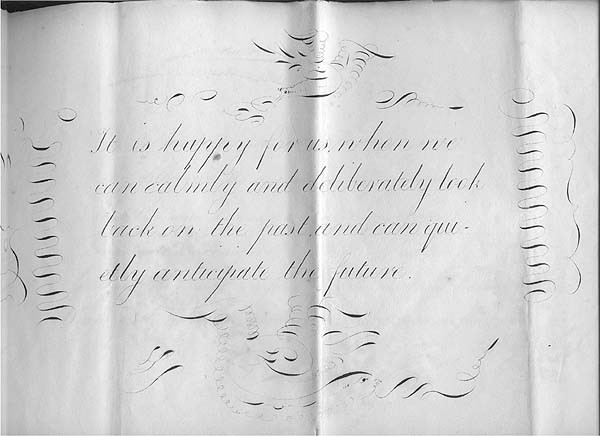 It is happy for us, when we
can calmly and deliberately look
back on the past, and can qui-
etly anticipate the future.